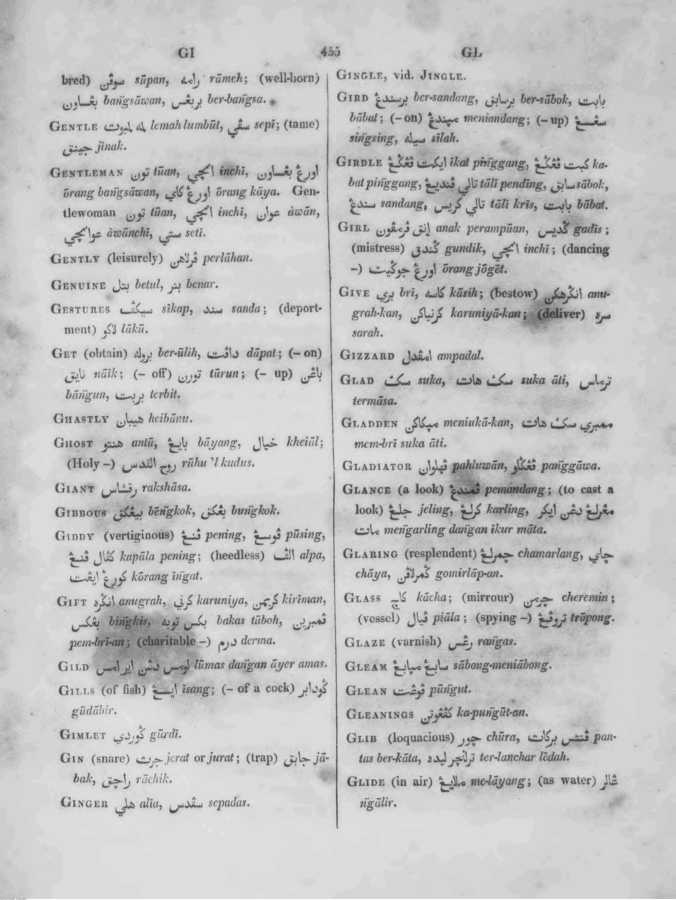 GI 455 GL
bred) سوڤن sūpan, رامه rāmeh; (well-born)
بڠساون bangsāwan, بربڠس ber-bangsa.
GENTLE لمه لمبوت lemah lumbūt, سڤي sepī; (tame)
جينق jīnak.
GENTLEMAN تون tūan, انچي inchi, اورڠ بڠساون
ōrang bangsāwan, اورڠ كاي ōrang kāya. Gen-
tlewoman تون tūan, انچي inchi, عوان āwān,
عوانچي āwānchi, ستي seti.
GENTLY (leisurely) ڤرلاهن perlāhan.
GENUINE بتل betul, بنر benar.
GESTURES سيكڤ sīkap, سند sanda; (deport-
ment) لاكو lākū.
GET (obtain) بروله ber-ūlih, داڤت dāpat; (– on)
نايق nāīk; (– off) تورن tūrun; (– up) باڠن
bāngun, تربت terbit.
GHASTLY هيبان heibānu.
GHOST هنتو antū, بايڠ bāyang, خيال kheiāl;
(Holy –) روح القدس rūhu 'l kudus.
GIANT رقشاس rakshāsa.
GIBBOUS بيڠكق bēngkok, بڠكق bungkok.
GIDDY (vertiginous) ڤنيڠ pening, ڤوسڠ pūsing,
كڤال ڤنيڠ kapāla pening; (heedless) الڤ alpa,
كورڠ ايڠت kōrang īngat.
GIFT انگره anugrah, كرني karuniya, كريمن kirīman,
بڠكس bingkis, بكس توبه bakas tūboh, ڤمبرين
pem-brī-an; (charitable –) درم derma.
GILD لومس دڠن اير امس lūmas dangan āyer amas.
GILLS (of fish) ايسڠ īsang; (– of a cock) گودابر
gūdābir.
GIMLET گوردي gūrdi.
GIN (snare) جرت jerat or jurat; (trap) جابق jā-
bak, راچق rāchik.
GINGER هلي alia, سڤدس sepadas.
GINGLE, vid. JINGLE.
GIRD برسندڠ ber-sandang, برسابق ber-sābok, بابت
bābat; (– on) مينندڠ meniandang; (– up) سڠسڠ
singsing, سيله silah.
GIRDLE ايكت ڤڠگڠ īkat pinggang, كبت ڤڠگڠ ka-
bat pinggang, تالي ڤنديڠ tālī pending, سابق sābok,
سندڠ sandang, تالي كريس tālī krīs, بابت bābat.
GIRL انق ڤرمڤون anak perampūan, گديس gadis;
(mistress) گندق gundik, انچي inchī; (dancing
–) اورڠ جوگيت ōrang jōgēt.
GIVE بري brī, كاسه kāsih; (bestow) انگرهكن anu-
grah-kan, كرنياكن karuniyā-kan; (deliver) سره
sarah.
GIZZARD امڤدل ampadal.
GLAD سك suka, سك هات suka āti, ترماس
termāsa.
GLADDEN ميكاكن meniukā-kan, ممبري سك هات
mem-brī suka āti.
GLADIATOR ڤهلوان pahluwān, ڤڠگاو panggāwa.
GLANCE (a look) ڤمندڠ pemandang; (to cast a
look) جلڠ jeling, كرلڠ karling, مڠرلڠ دڠن ايكر
مات mengarling dangan īkur māta.
GLARING (resplendent) چمرلڠ chamarlang, چاي
chāya, گمرلاڤن gomirlāp-an.
GLASS كاچ kācha; (mirrour) چرمن cheremin;
(vessel) ڤيال piāla; (spying –) تروڤڠ trūpong.
GLAZE (varnish) رڠس rangas.
GLEAM سابڠ ميابڠ sābong-meniābong.
GLEAN ڤوڠت pūngut.
GLEANINGS كڤڠوتن ka-pungūt-an.
GLIB (loquacious) چور chūra, ڤنتس بركات pan-
tas ber-kāta, ترلنچر ليده ter-lanchar līdah.
GLIDE (in air) ملايڠ me-lāyang; (as water) ڠالر
ngālir.